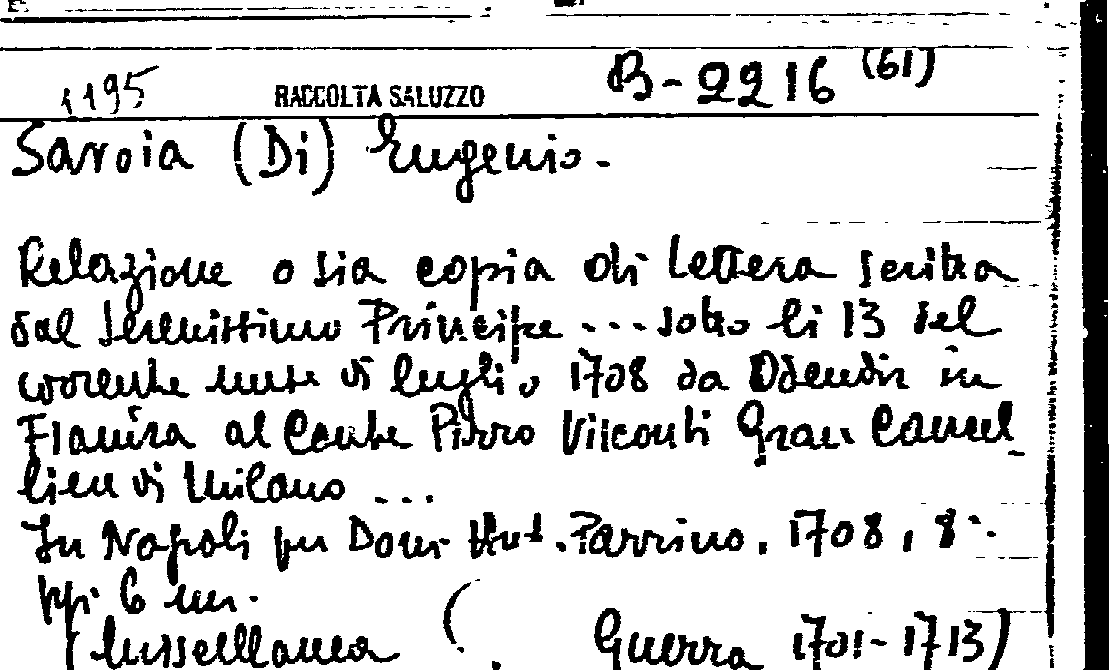 1195 RACCOLTA SALUZZO B-2216 (61)
Savoia (Di) Eugenio.
Relazione o sia copia di lettera scritta
dal Serenissimo Principe ... sotto li 13 del
corrente mese di luglio 1708 da Odendir in
Fiandra al Conte Pirro Visconti Gran Cancel_
liere di Milano ...
In Napoli per Dom. Ant. Parrino, 1708, 8°.
pp. 6 nn.
(Miscellanea ( Guerra 1701-1713)